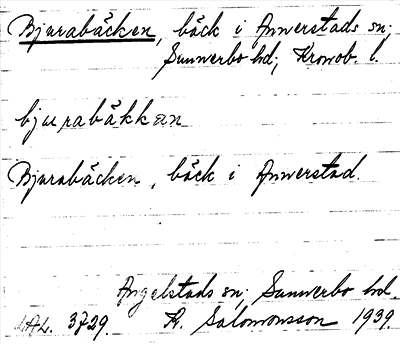 Bjurabäcken, bäck i Annerstads sn;
Sunnerbo hd; Kronob. l.
bjurabäkkan
Bjurabäcken, bäck i Annerstad.
Angelstads sn; Sunnerbo hd.
LAL. 3729. A. Salomonsson 1939.